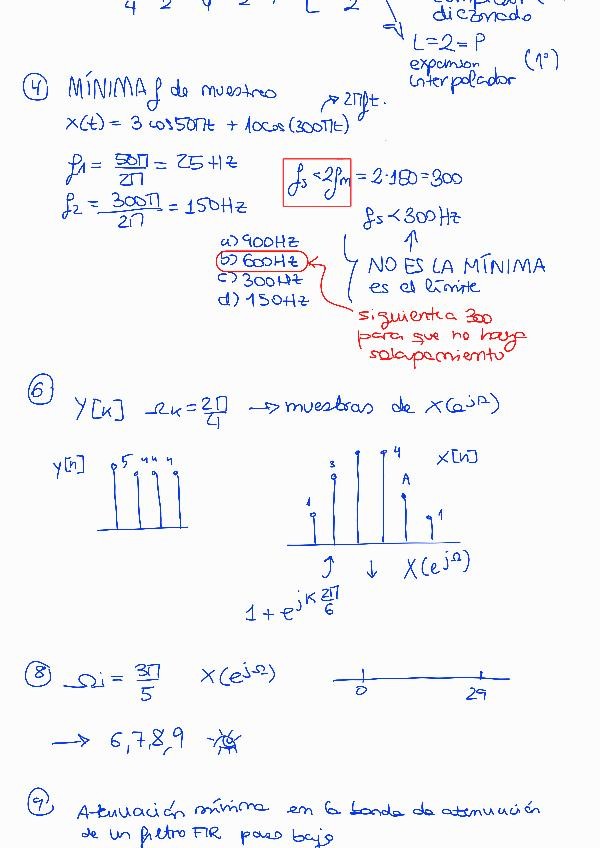 4 2 4 2 , L 2
diezmado
L=2=P
expansor
interpolador
(1º)
④ MÍNIMA f de muestreo
→ 2πft.
x(t) = 3 cos50πt + 10cos(300πt)
f1 = 50π/2π = 25Hz
f2 = 300π/2π = 150Hz
fs < 2fm = 2·150 = 300
fs < 300Hz
a) 900Hz
b) 600Hz
c) 300Hz
d) 150Hz
NO ES LA MÍNIMA
es el límite
siguiente a 300
para que no haya
solapamiento
⑥ Y[k] Ωk = 2π/4 → muestras de X(e^jΩ)
y[n] 5 4 4 4
1 3 4 A 1 x[n]
↑ ↓ X(e^jΩ)
1 + e^jk 2π/6
⑧ Ωi = 3π/5 X(e^jΩ)
0 29
→ 6,7,8,9
⑨ Atenuación mínima en la banda de atenuación
de un filtro FIR paso bajo